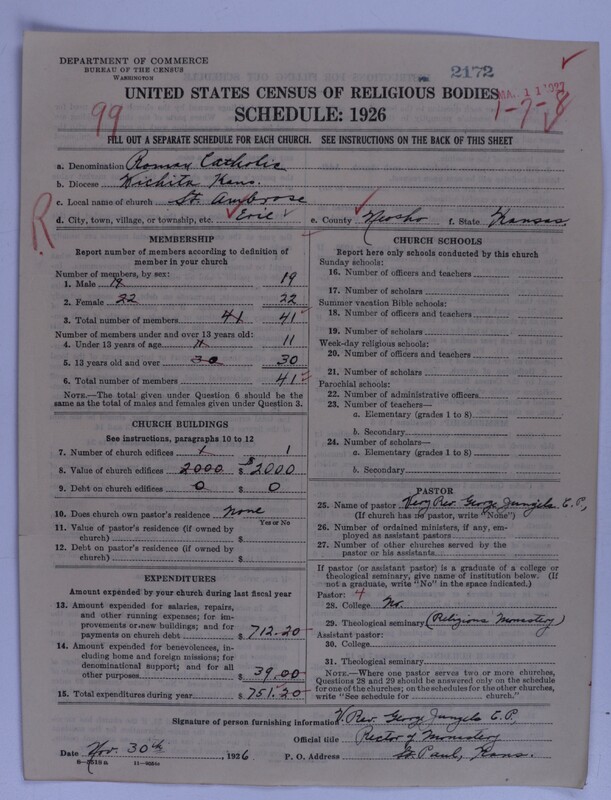 DEPARTMENT OF COMMERCE
BUREAU OF THE CENSUS
WASHINGTON
2172
UNITED STATES CENSUS OF RELIGIOUS BODIES
SCHEDULE: 1926
1-7-8
99
FILL OUT A SEPARATE SCHEDULE FOR EACH CHURCH. SEE INSTRUCTIONS ON THE BACK OF THIS SHEET
a. Denomination Roman Catholic
b. Diocese Wichita Kans.
c. Local name of church St. Ambrose
R
d. City, town, village, or township, etc. Erie e. County Neosho f. State Kansas.
MEMBERSHIP
Report number of members according to definition of
member in your church
Number of members, by sex:
1. Male 19 19
2. Female 22 22
3. Total number of members 41 41
Number of members under and over 13 years old:
4. Under 13 years of age 11 11
5. 13 years old and over 30 30
6. Total number of members 41
NOTE.—The total given under Question 6 should be
same as the total of males and females given under Question 3.
CHURCH BUILDINGS
See instructions, paragraphs 10 to 12
7. Number of church edifices 1 1
8. Value of church edifices 2000 $ 2000
9. Debt on church edifices 0 $ 0
10. Does church own pastor's residence None
Yes or No
11. Value of pastor's residence (if owned by
church) $
12. Debt on pastor's residence (if owned by
church) $
EXPENDITURES
Amount expended by your church during last fiscal year
13. Amount expended for salaries, repairs,
and other running expenses; for im-
provements or new buildings; and for
payments on church debt $ 712.20
14. Amount expended for benevolences,
including home and foreign missions; for
denominational support; and for all
other purposes $ 39.00
15. Total expenditures during year $ 751.20
CHURCH SCHOOLS
Report here only schools conducted by this church
Sunday schools:
16. Number of officers and teachers
17. Number of scholars
Summer vacation Bible schools:
18. Number of officers and teachers
19. Number of scholars
Week-day religious schools:
20. Number of officers and teachers
21. Number of scholars
Parochial schools:
22. Number of administrative officers
23. Number of teachers—
a. Elementary (grades 1 to 8)
b. Secondary
24. Number of scholars—
a. Elementary (grades 1 to 8)
b. Secondary
PASTOR
25. Name of pastor Very Rev. George Jungels C.P.,
(If church has no pastor, write "None")
26. Number of ordained ministers, if any, em-
ployed as assistant pastors
27. Number of other churches served by the
pastor or his assistants
If pastor (or assistant pastor) is a graduate of a college or
theological seminary, give name of institution below. (If
not a graduate, write "No" in the space indicated.)
Pastor: 4
28. College No.
29. Theological seminary (Religious Monastery)
Assistant pastor:
30. College
31. Theological seminary
NOTE.—Where one pastor serves two or more churches,
Questions 28 and 29 should be answered only on the schedule
for one of the churches; on the schedules for the other churches,
write "See schedule for church."
Signature of person furnishing information V. Rev. George Jungels C.P.,
Official title Rector of Monastery
Date Nov. 30th, 1926 P. O. Address St. Paul, Kans.